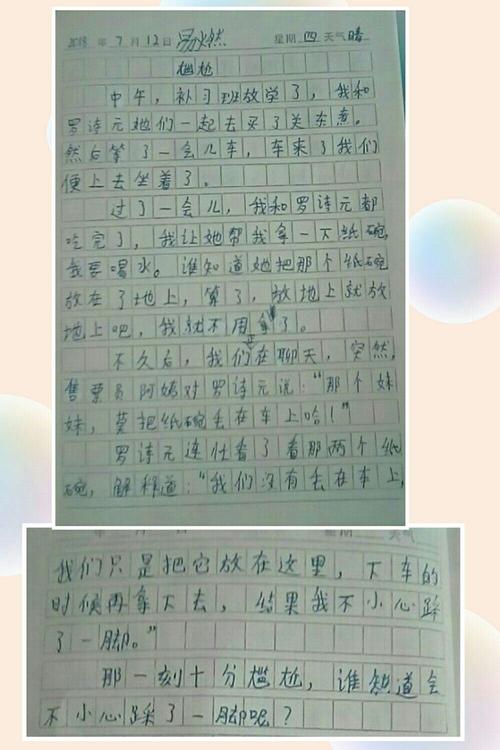 2018 年 7 月 12 日 易火然 星期 四 天气 晴
尴尬
中午，补习班放学了，我和
罗诗元她们一起去买了关东煮。
然后等了一会儿车，车来了我们
便上去坐着了。
过了一会儿，我和罗诗元都
吃完了，我让她帮我拿一下纸碗，
我要喝水。谁知道她把那个纸碗
放在了地上，算了，放地上就放
地上吧，我就不用拿了。
不久后，我们在聊天，突然，
售票员阿姨对罗诗元说："那个妹
妹，莫把纸碗丢在车上哈！"
罗诗元连忙看了看那两个纸
碗，解释道："我们没有丢在车上，
年 月 日 星期 天气
我们只是把它放在这里，下车的
时候再拿下去，结果我不小心踩
了一脚。"
那一刻十分尴尬，谁知道会
不小心踩了一脚呢？